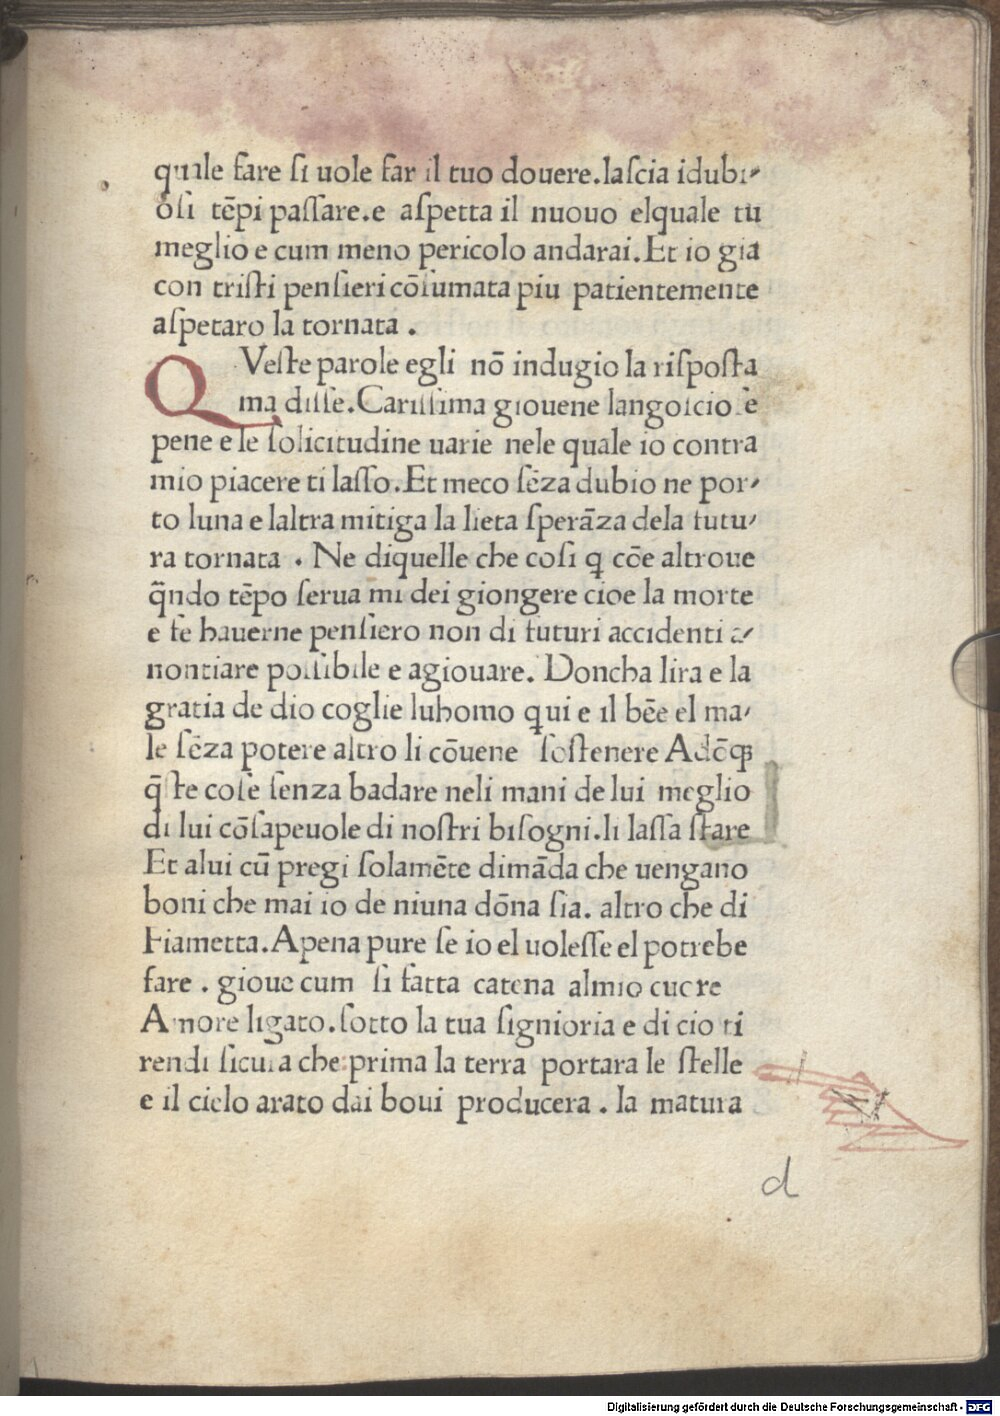 quale fare ſi uole far il tuo douere.laſcia idubi⸗
oſi tēpi paſſare.e aſpetta il nuouo elquale tu
meglio e cum meno pericolo andarai.Et io gia
con triſti penſieri cōſumata piu patientemente
aſpetaro la tornata .
QVeſte parole egli nō indugio la riſpoſta
ma diſſe.Cariſſima giouene langoſcio ſe
pene e le ſolicitudine uarie nele quale io contra
mio piacere ti laſſo.Et meco ſēza dubio ne por⸗
to luna e laltra mitiga la lieta ſperāza dela futu⸗
ra tornata . Ne diquelle che coſi q cōe altroue
q̄ndo tēpo ſerua mi dei giongere cioe la morte
e fe hauerne penſiero non di futuri accidenti a⸗
nontiare poſſibile e agiouare. Doncha lira e la
gratia de dio coglie luhomo qui e il bēe el ma⸗
le ſēza potere altro li cōuene ſoſtenere Adōqꝫ
q̄ſte coſe ſenza badare neli mani de lui meglio
di lui cōſapeuole di noſtri biſogni.li laſſa ſtare
Et alui cū pregi ſolamēte dimāda che uengano
boni che mai io de niuna dōna ſia. altro che di
Fiametta.Apena pure ſe io el uoleſſe el potrebe
fare . gioue cum ſi fatta catena almio cuore
Amore ligato.ſotto la tua ſignioria e di cio ti
rendi ſicura che prima la terra portara le ſtelle
e il cielo arato dai boui producera . la matura
d
Digitalisierung gefördert durch die Deutsche Forschungsgemeinschaft - DFG